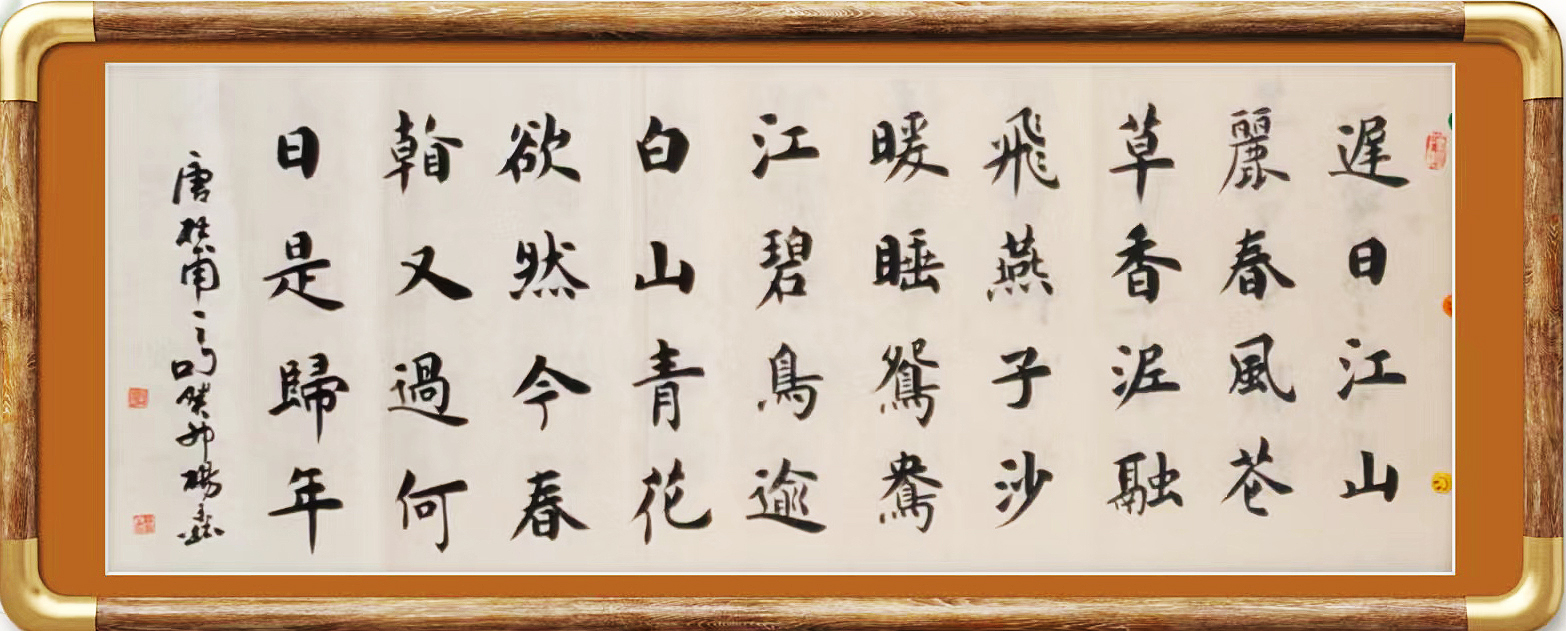 遲日江山
麗春風花
草香泥融
飛燕子沙
暖睡鴛鴦
江碧鳥逾
白山青花
欲然今春
看又過何
日是歸年
唐杜甫之句癸卯楊